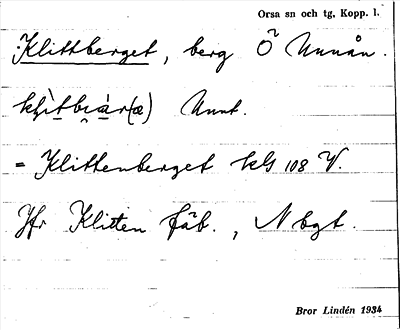 Orsa sn och tg, Kopp. l.
Klittberget, berg Ö Unnån.
Unnt.
= Klittenberget kbl 108 V.
Jfr Klitten fäb., N bgt.
Bror Lindén 1934